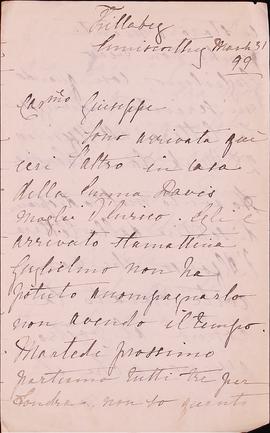 Trillabeg
Enniscorthy March 31
99
Car.mo Giuseppe
Sono arrivata qui
ieri l'altro in casa
della Emma Davis
moglie d'Enrico. Egli è
arrivato stamattina
Guglielmo non ha
potuto accompagnarlo
non avendo il tempo.
Martedì prossimo
partiamo tutti tre per
Londra non so quanti